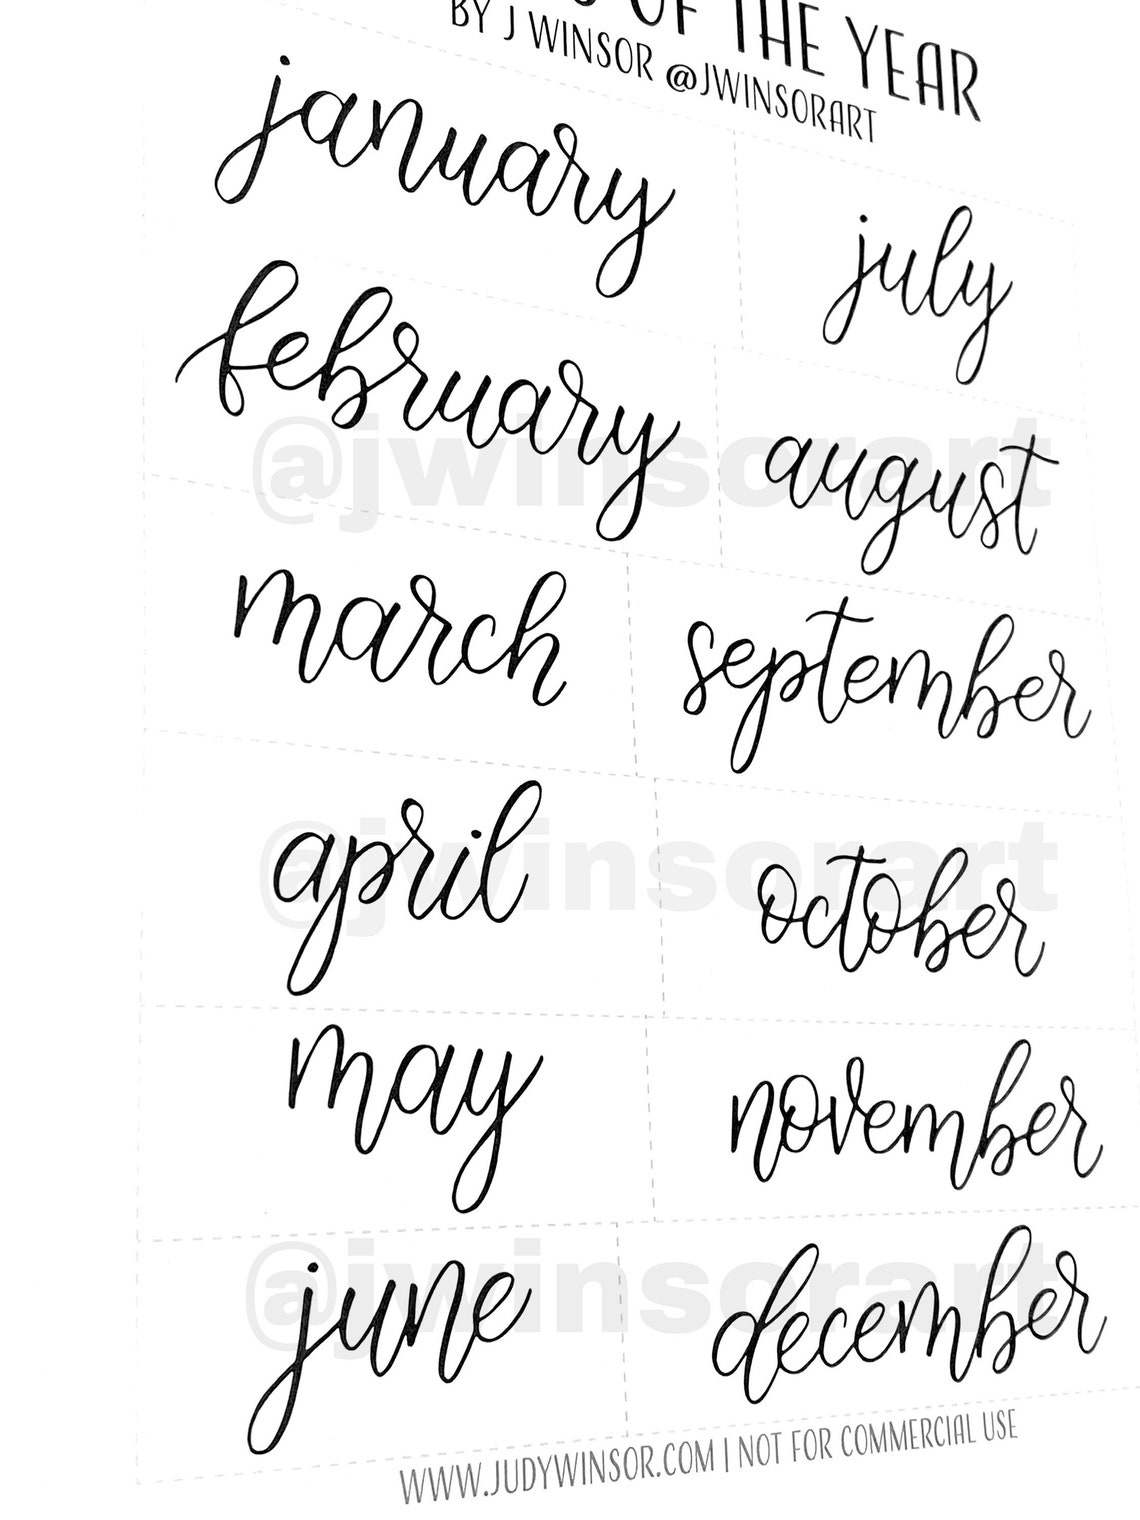 OF THE YEAR
BY J WINSOR @JWINSORART
january
february
march
april
may
june
july
august
september
october
november
december
@jwinsorart
@jwinsorart
@jwinsorart
WWW.JUDYWINSOR.COM | NOT FOR COMMERCIAL USE